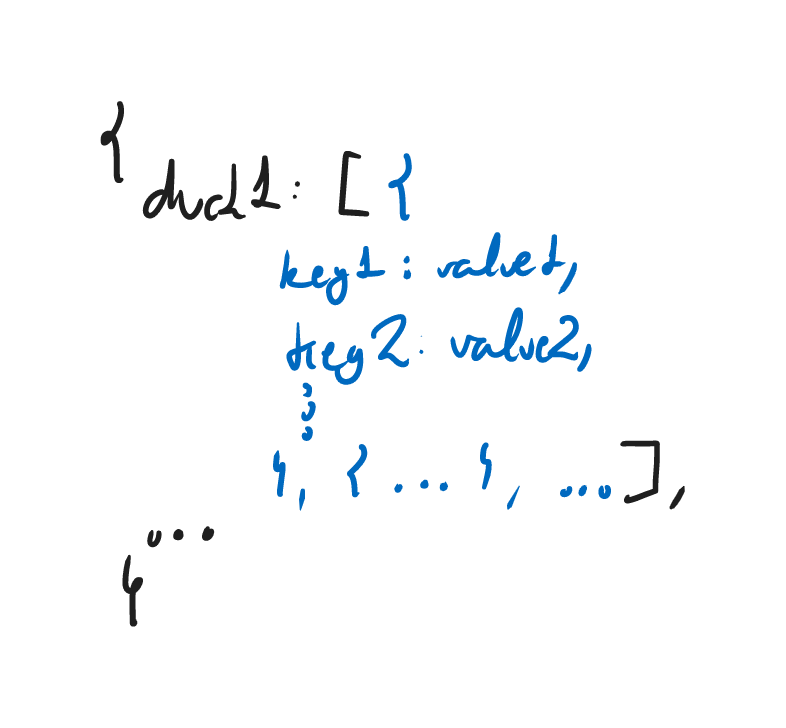 {
: [ {
key1 : value1,
key2 : value2,
⋮
}, { ... }, ... ],
...
}